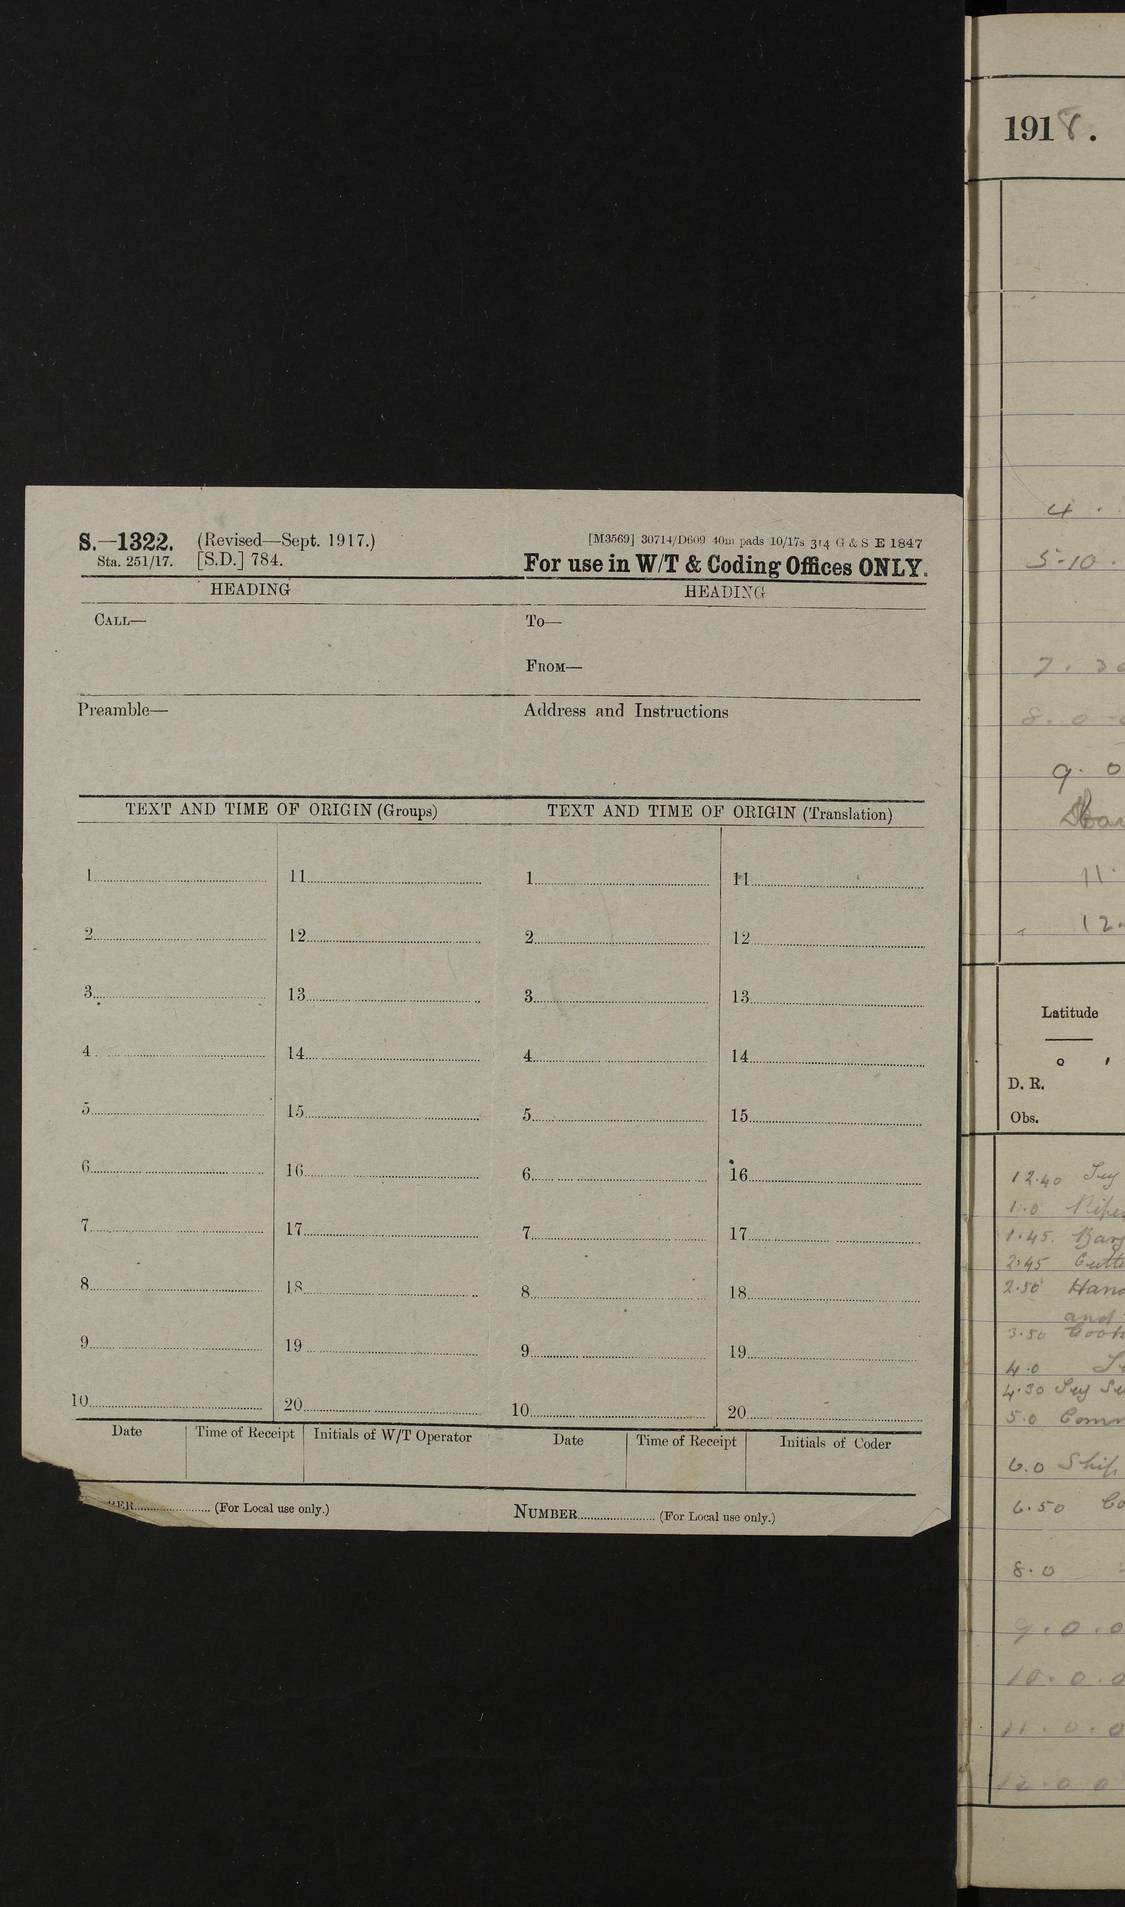 S.—1322. (Revised—Sept. 1917.) [M3569] 30714/D609 40m pads 10/17s 314 G & S E 1847
Sta. 251/17. [S.D.] 784. For use in W/T & Coding Offices ONLY.
HEADING HEADING
CALL— To—
FROM—
Preamble— Address and Instructions
TEXT AND TIME OF ORIGIN (Groups) TEXT AND TIME OF ORIGIN (Translation)
1 11 1 11
2 12 2 12
3 13 3 13
4 14 4 14
5 15 5 15
6 16 6 16
7 17 7 17
8 18 8 18
9 19 9 19
10 20 10 20
Date Time of Receipt Initials of W/T Operator Date Time of Receipt Initials of Coder
BER (For Local use only.) NUMBER (For Local use only.)
1918.
4 .
5.10 .
7. 30
8. 0
9. 0
11.
12.
Latitude
° ′
D. R.
Obs.
12.40
1.0
1.45.
2.45
2.50 Hand
and
3.50
4.0
4.30
5.0 Comm
6.0 Ship
6.50 Co
8.0
9.0.0
10.0.0
11.0.0
12.0 0